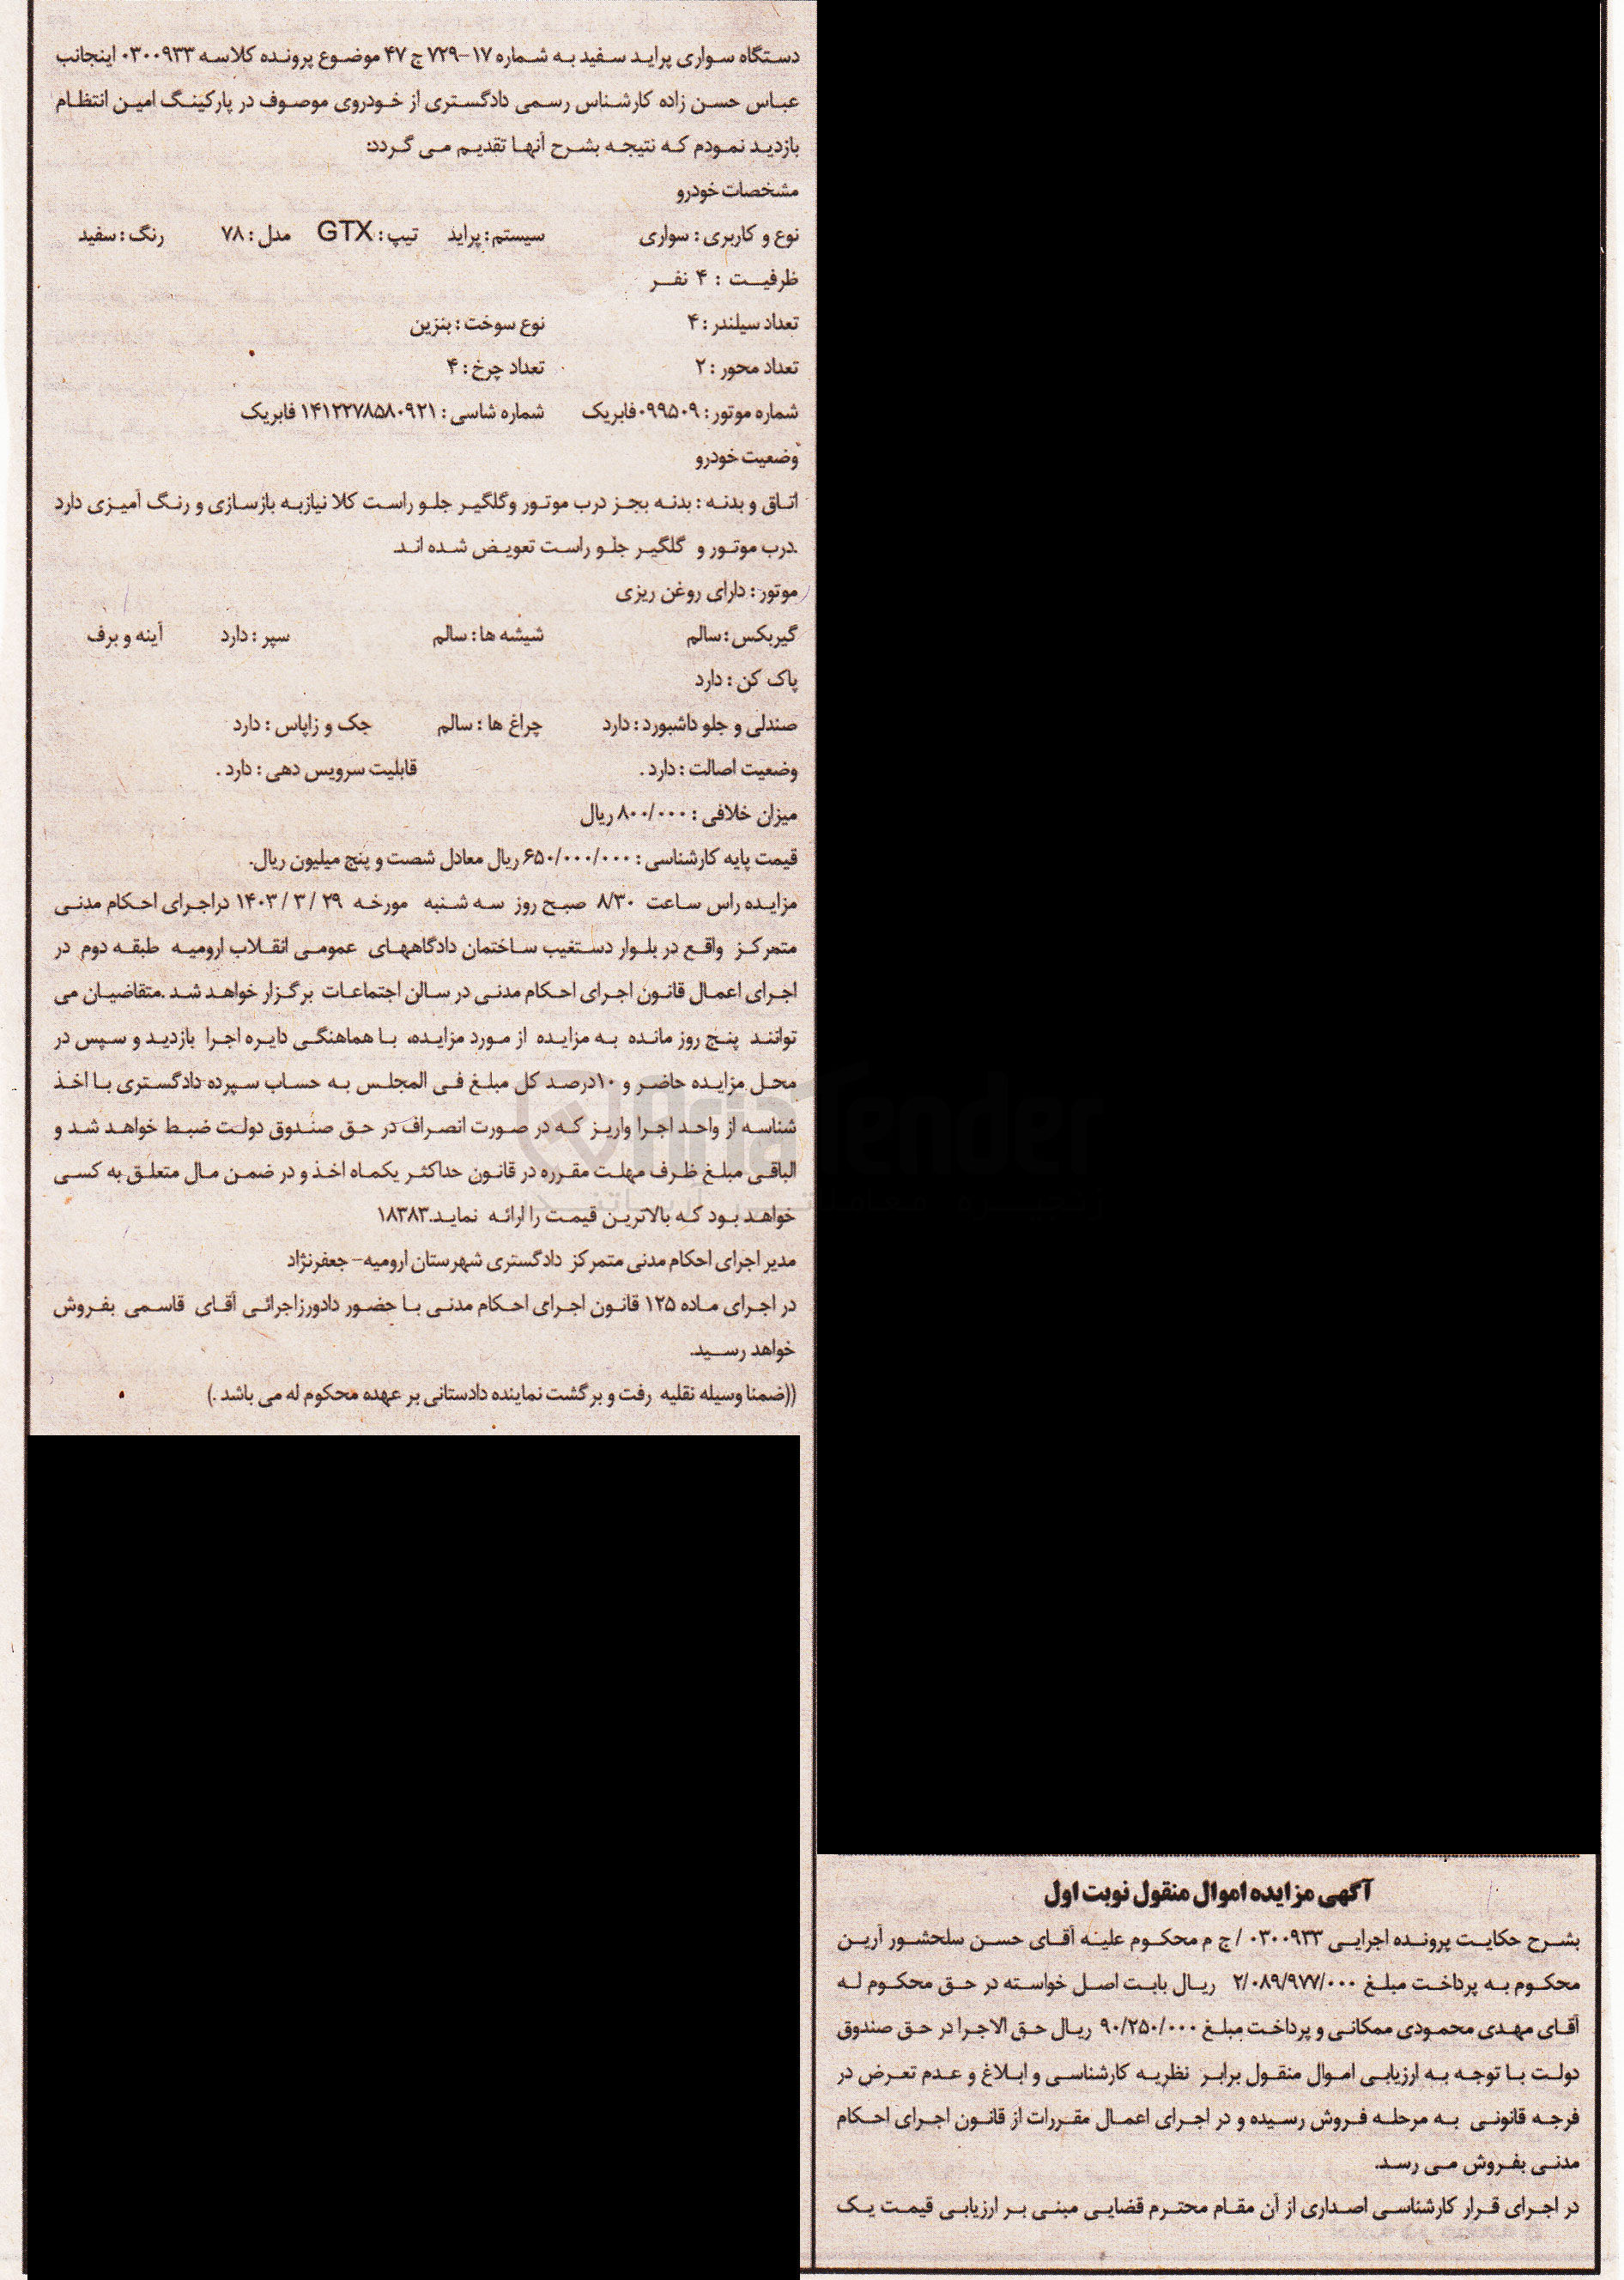 آگهی مزایده اموال منقول نوبت اول
بشرح حکایت پرونده اجرایی ۰۳۰۰۹۳۳ / ج م محکوم علیه آقای حسن سلحشور آرین
محکوم به پرداخت مبلغ ۲/۰۸۹/۹۷۷/۰۰۰ ریال بابت اصل خواسته در حق محکوم له
آقای مهدی محمودی ممکانی و پرداخت مبلغ ۹۰/۲۵۰/۰۰۰ ریال حق الاجرا در حق صندوق
دولت با توجه به ارزیابی اموال منقول برابر نظریه کارشناسی و ابلاغ و عدم تعرض در
فرجه قانونی به مرحله فروش رسیده و در اجرای اعمال مقررات از قانون اجرای احکام
مدنی بفروش می رسد.
در اجرای قرار کارشناسی اصداری از آن مقام محترم قضایی مبنی بر ارزیابی قیمت یک
دستگاه سواری پراید سفید به شماره ۱۷-۷۲۹ ج ۴۷ موضوع پرونده کلاسه ۰۳۰۰۹۳۳ اینجانب
عباس حسن زاده کارشناس رسمی دادگستری از خودروی موصوف در پارکینگ امین انتظام
بازدید نمودم که نتیجه بشرح آنها تقدیم می گردد:
مشخصات خودرو
نوع و کاربری : سواری سیستم : پراید تیپ : GTX مدل : ۷۸ رنگ : سفید
ظرفیت : ۴ نفر
تعداد سیلندر : ۴ نوع سوخت : بنزین
تعداد محور : ۲ تعداد چرخ : ۴
شماره موتور : ۰۹۹۵۰۹ فابریک شماره شاسی : ۱۴۱۲۲۷۸۵۸۰۹۲۱ فابریک
وضعیت خودرو
اتاق و بدنه : بدنه بجز درب موتور وگلگیر جلو راست کلا نیازبه بازسازی و رنگ آمیزی دارد
.درب موتور و گلگیر جلو راست تعویض شده اند.
موتور : دارای روغن ریزی
گیربکس : سالم شیشه ها : سالم سپر : دارد آینه و برف
پاک کن : دارد
صندلی و جلو داشبورد : دارد چراغ ها : سالم جک و زاپاس : دارد
وضعیت اصالت : دارد . قابلیت سرویس دهی : دارد .
میزان خلافی : ۸۰۰/۰۰۰ ریال
قیمت پایه کارشناسی : ۶۵۰/۰۰۰/۰۰۰ ریال معادل شصت و پنج میلیون ریال.
مزایده راس ساعت ۸/۳۰ صبح روز سه شنبه مورخه ۲۹ / ۳ / ۱۴۰۳ دراجرای احکام مدنی
متمرکز واقع در بلوار دستغیب ساختمان دادگاههای عمومی انقلاب ارومیه طبقه دوم در
اجرای اعمال قانون اجرای احکام مدنی در سالن اجتماعات برگزار خواهد شد .متقاضیان می
توانند پنج روز مانده به مزایده از مورد مزایده، با هماهنگی دایره اجرا بازدید و سپس در
محل مزایده حاضر و ۱۰درصد کل مبلغ فی المجلس به حساب سپرده دادگستری با اخذ
شناسه از واحد اجرا واریز که در صورت انصراف در حق صندوق دولت ضبط خواهد شد و
الباقی مبلغ ظرف مهلت مقرره در قانون حداکثر یکماه اخذ و در ضمن مال متعلق به کسی
خواهد بود که بالاترین قیمت را ارائه نماید.۱۸۳۸۳
مدیر اجرای احکام مدنی متمرکز دادگستری شهرستان ارومیه- جعفرنژاد
در اجرای ماده ۱۲۵ قانون اجرای احکام مدنی با حضور دادورزاجرائی آقای قاسمی بفروش
خواهد رسید.
((ضمنا وسیله نقلیه رفت و برگشت نماینده دادستانی بر عهده محکوم له می باشد .)
AriaTender